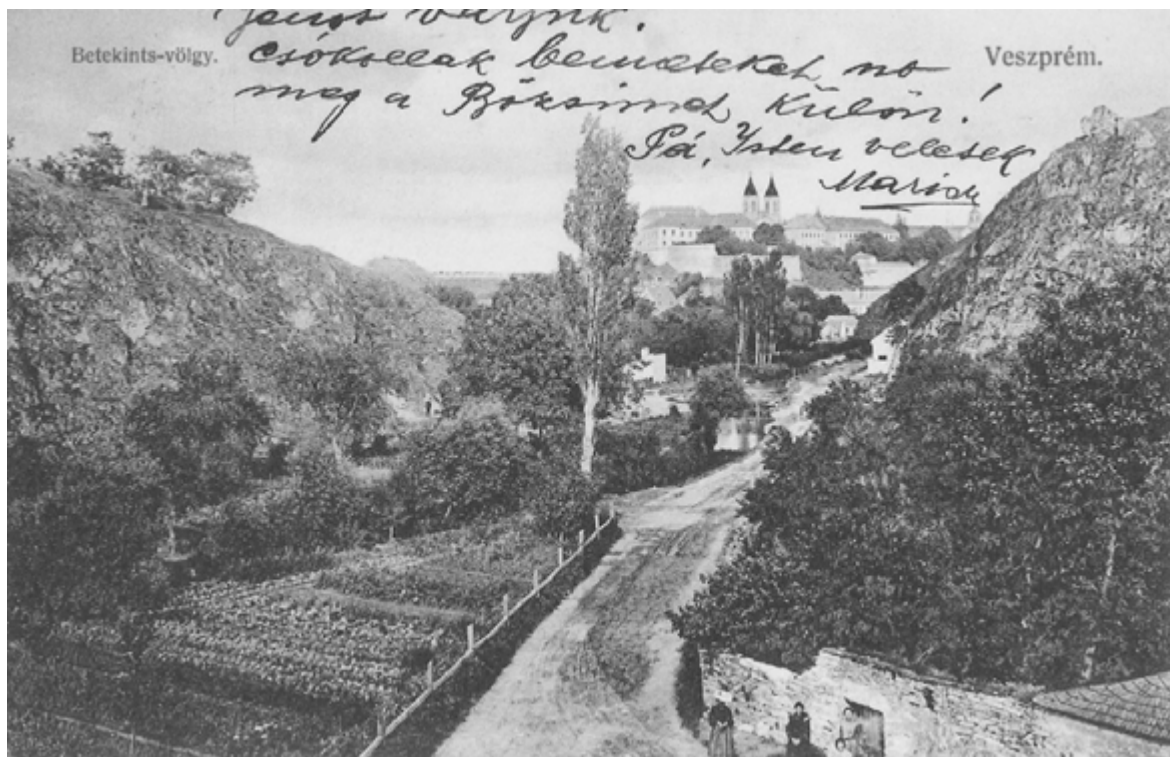 Betekints-völgy.
Veszprém.
várjuk.
csókollak benneteket no
meg a Bözsimet külön!
Pá, Isten veletek
Mariska